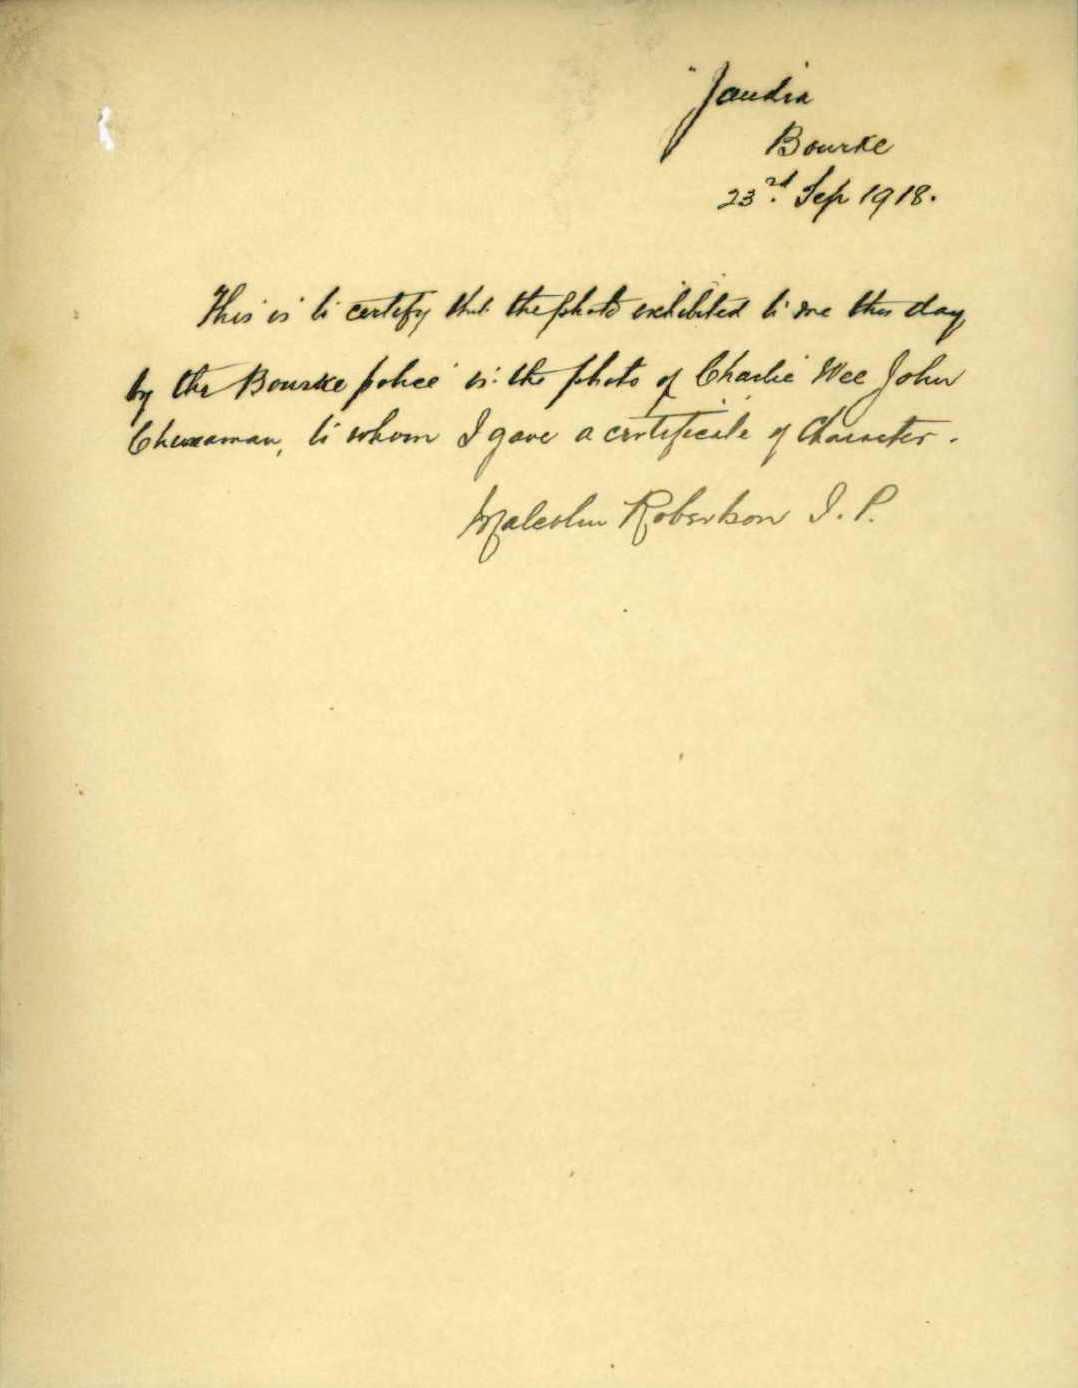 "Jandra
Bourke
23rd. Sep 1918.
This is to certify that the photo exhibited to me this day
by the Bourke police is the photo of Charlie Wee John
Chinaman, to whom I gave a certificate of Character.
Malcolm Robertson J.P.